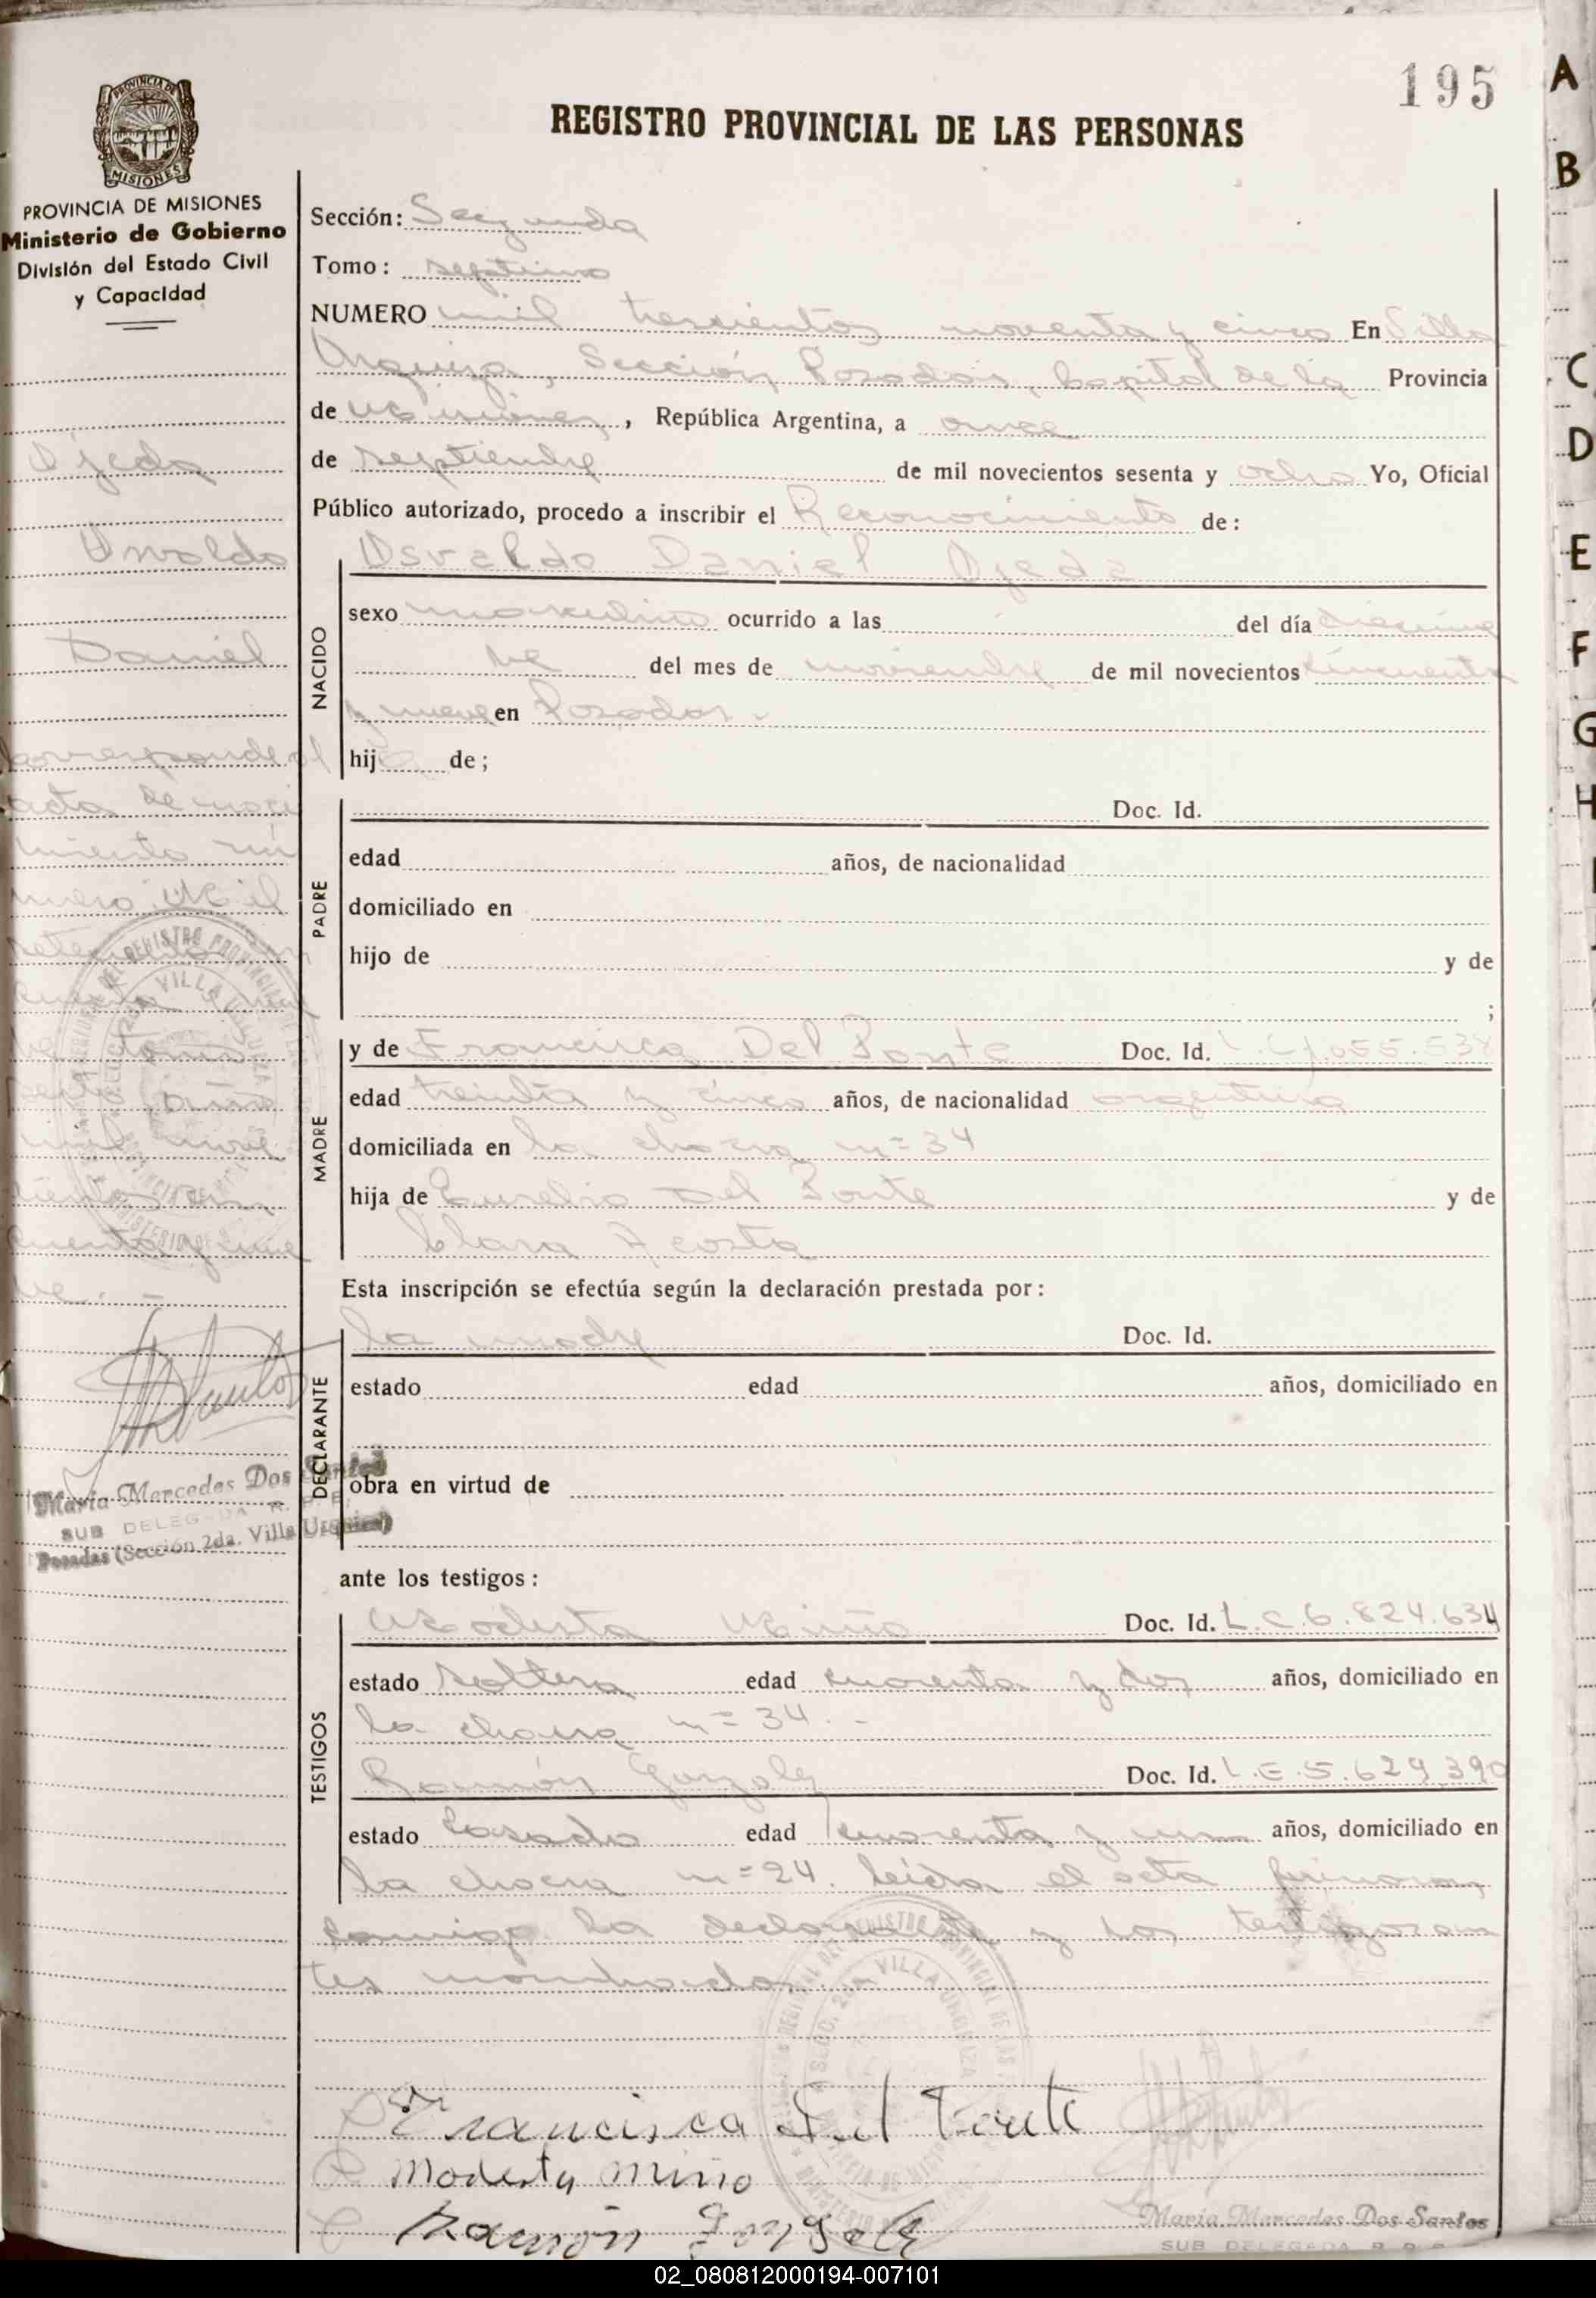 195
REGISTRO PROVINCIAL DE LAS PERSONAS
PROVINCIA DE MISIONES
PROVINCIA DE MISIONES
Ministerio de Gobierno
División del Estado Civil
y Capacidad
Ojeda
Osvaldo
Daniel
Corresponde al
acta de naci
miento nú
mero Mil
setecientos
nue
ve tomo
año
mil nove
cientos cin
cuenta y nue
ve. -
Maria Mercedes Dos Santos
SUB DELEGADA R. P. P.
Posadas (Sección 2da. Villa Urquiza)
Sección: Segunda
Tomo: septimo
NUMERO mil trescientos noventa y cinco En Villa
Urquiza, Sección Posadas, Capital de la Provincia
de Misiones, República Argentina, a once
de septiembre de mil novecientos sesenta y ocho Yo, Oficial
Público autorizado, procedo a inscribir el Reconocimiento de:
NACIDO
Osvaldo Daniel Ojeda
sexo masculino ocurrido a las del día diecinue
ve del mes de noviembre de mil novecientos cincuenta
y nueve en Posadas.-
hijo de;
PADRE
Doc. Id.
edad años, de nacionalidad
domiciliado en
hijo de y de
;
MADRE
y de Francisca Del Ponte Doc. Id.
edad treinta y cinco años, de nacionalidad argentina
domiciliada en la chacra nº 34
hija de Eurelio Del Ponte y de
Clara Acosta
Esta inscripción se efectúa según la declaración prestada por:
DECLARANTE
la madre Doc. Id.
estado edad años, domiciliado en
obra en virtud de
ante los testigos:
TESTIGOS
Modesta Miño Doc. Id. L.C.6.824.634
estado soltera edad cuarenta y dos años, domiciliado en
la chacra nº 34.-
Ramón Gonzalez Doc. Id. L.E.5.629.390
estado Casado edad cuarenta y un años, domiciliado en
la chacra nº 24. Leida el acta firmaron
conmigo la declarante y los testigos an
tes nombrados.-
Francisca Del Ponte
Modesta Miño
Ramón Gonzalez
Maria Mercedes Dos Santos
SUB DELEGADA R. P. P.
A
B
C
D
E
F
G
H
02_080812000194-007101